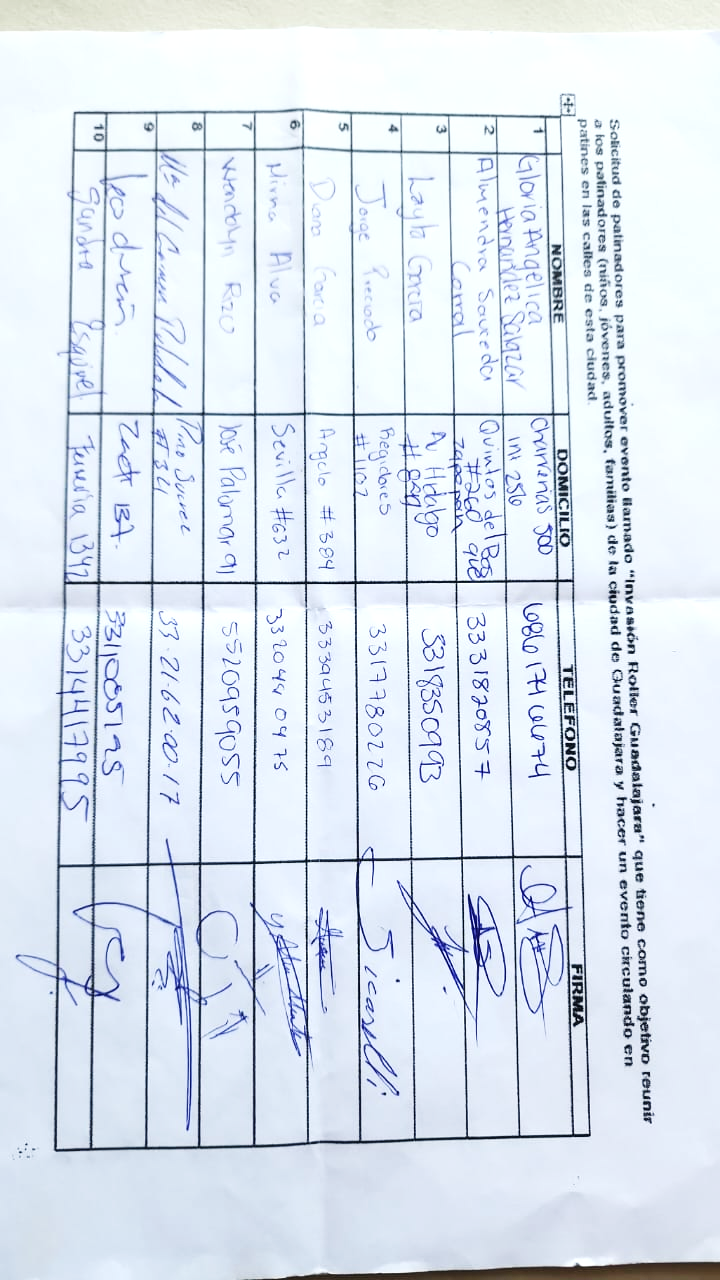 Solicitud de patinadores para promover evento llamado "Invasión Roller Guadalajara" que tiene como objetivo reunir
a los patinadores (niños, jóvenes, adultos, familias) de la ciudad de Guadalajara y hacer un evento circulando en
patines en las calles de esta ciudad.
NOMBRE DOMICILIO TELEFONO FIRMA
1 Gloria Angelica
Hernandez Salazar 500
int 256 6861746674
2 Almendra Saucedo
Corral Quintos del Bos
#260 Zapopan 3331820857
3 Layla Garcia Av Hidalgo
5318350993
4 Jorge Preciado Regidores
#1107 3317780226
5 Diana Garcia Angulo #384 3339453189
6 Mirna Alva Seville #632 3320440475
7 Wendolyn Rizo José Palomar 91 5520959055
8 Ma del Carmen Pino Suarez
33.21.62.00.17
9 Leo 3310051525
10 Sandra Esquivel 1342 3314417995